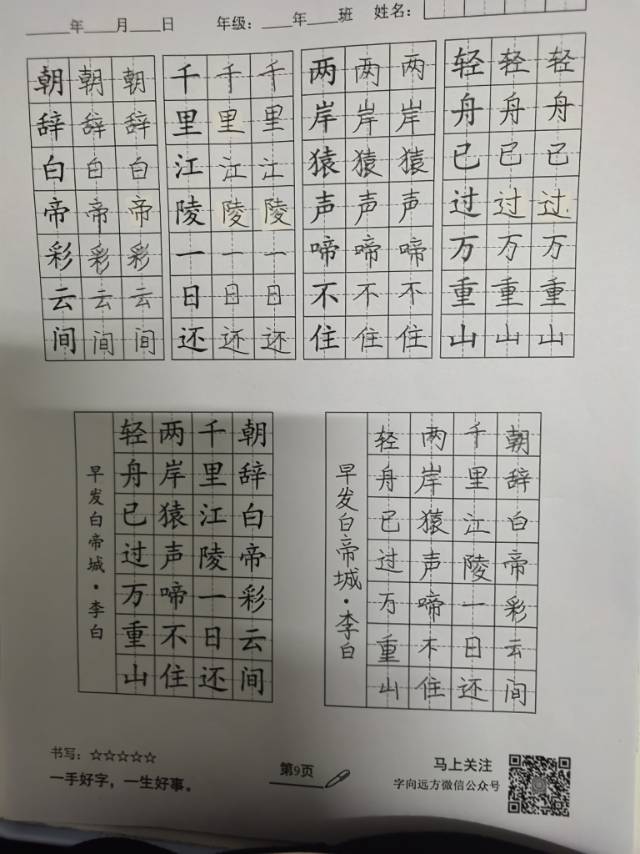 _____年____月____日 年级：____年____班 姓名：
朝辞白帝彩云间
朝辞白帝彩云间
朝辞白帝彩云间
千里江陵一日还
千里江陵一日还
千里江陵一日还
两岸猿声啼不住
两岸猿声啼不住
两岸猿声啼不住
轻舟已过万重山
轻舟已过万重山
轻舟已过万重山
朝辞白帝彩云间
千里江陵一日还
两岸猿声啼不住
轻舟已过万重山
早发白帝城·李白
朝辞白帝彩云间
千里江陵一日还
两岸猿声啼不住
轻舟已过万重山
早发白帝城·李白
书写：☆☆☆☆☆
一手好字，一生好事。
第9页
马上关注
字向远方微信公众号